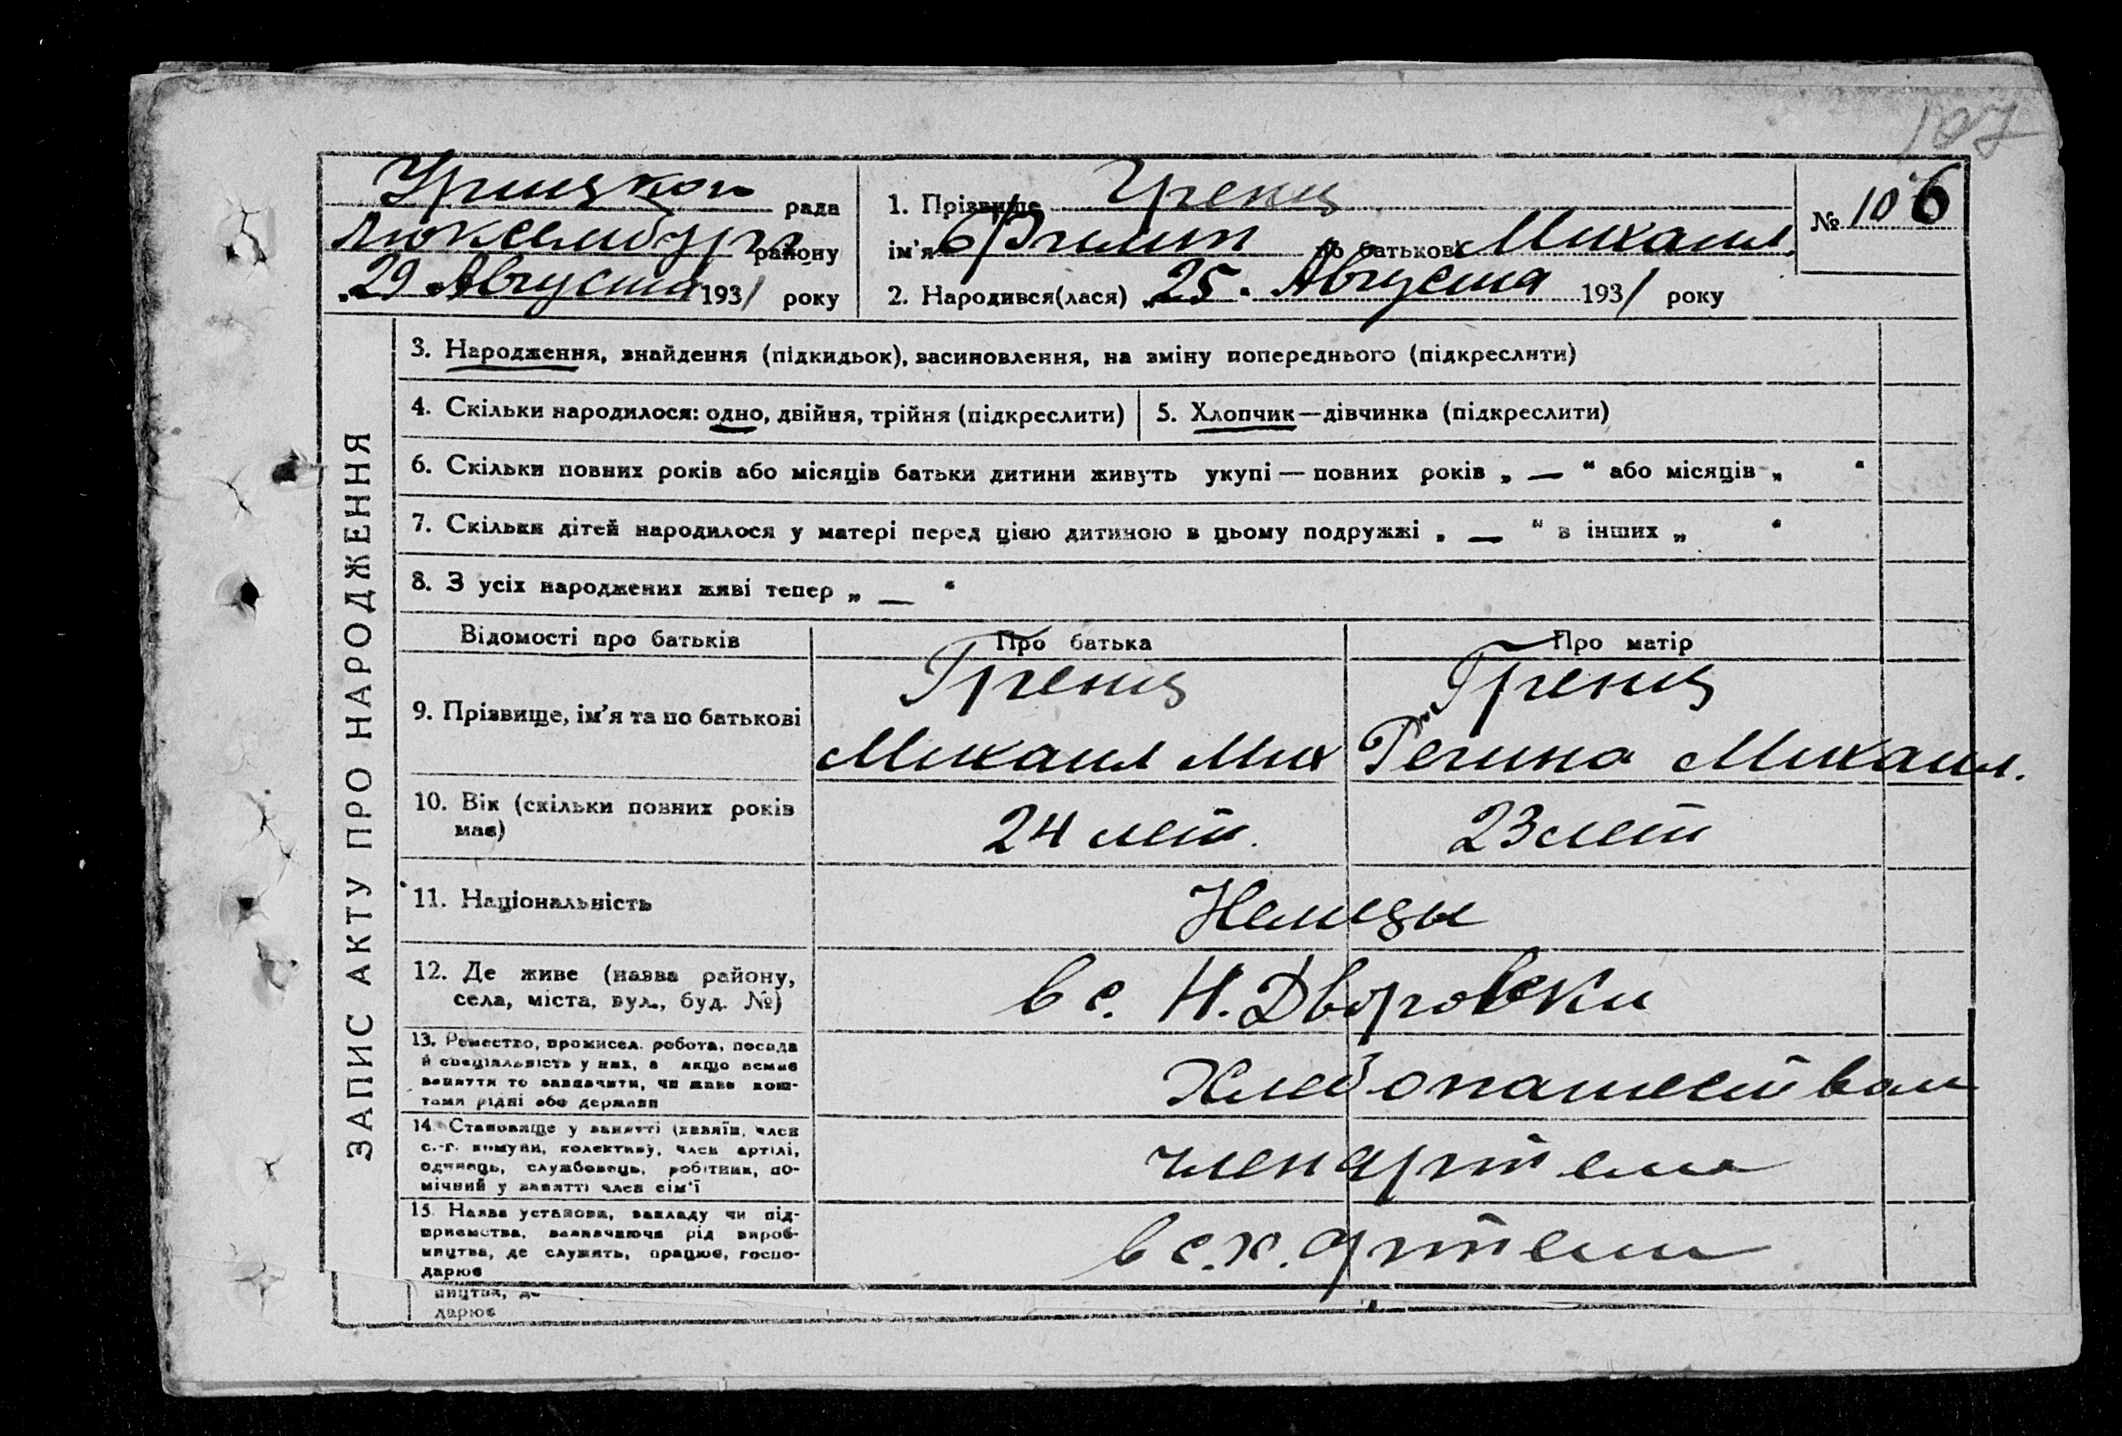 127
Урицкой рада
Люксембург району
„29 Августа 1931 року
1. Прізвище Гренц
ім'я Филип по батькові Михаил.
2. Народився(лася) „25. Августа 1931 року
№ 106
ЗАПИС АКТУ ПРО НАРОДЖЕННЯ
3. Народження, знайдення (підкидьок), засиновлення, на зміну попереднього (підкреслити)
4. Скільки народилося: одно, двійня, трійня (підкреслити)
5. Хлопчик—дівчинка (підкреслити)
6. Скільки повних років або місяців батьки дитини живуть укупі — повних років „ — “ або місяців „ “
7. Скільки дітей народилося у матері перед цією дитиною в цьому подружжі „ — “ в інших „ “
8. З усіх народжених живі тепер „ — “
Відомості про батьків
Про батька
Про матір
9. Прізвище, ім'я та по батькові
Гренц
Михаил Мих
Гренц
Регина Михаил.
10. Вік (скільки повних років
має)
24 лет.
23 лет
11. Національність
Немцы
12. Де живе (назва району,
села, міста, вул., буд. №)
в с. Н. Дворовки
13. Ремество, промисел, робота, посада
й спеціальність у них, а якщо немає
заняття то зазначити, чи живе кош-
тами рідні або держави
Хлебопашеством
14. Становище у занятті (хазяїн, член
с.-г. комуни, колективу, член артілі,
одинець, службовець, робітник, по-
мічний у занятті член сім'ї
член артели
15. Назва установи, закладу чи під-
приємства, зазначаючи рід вироб-
ництва, де служить, працює, госпо-
дарює
в с.х. артели
ництва, де
дарює